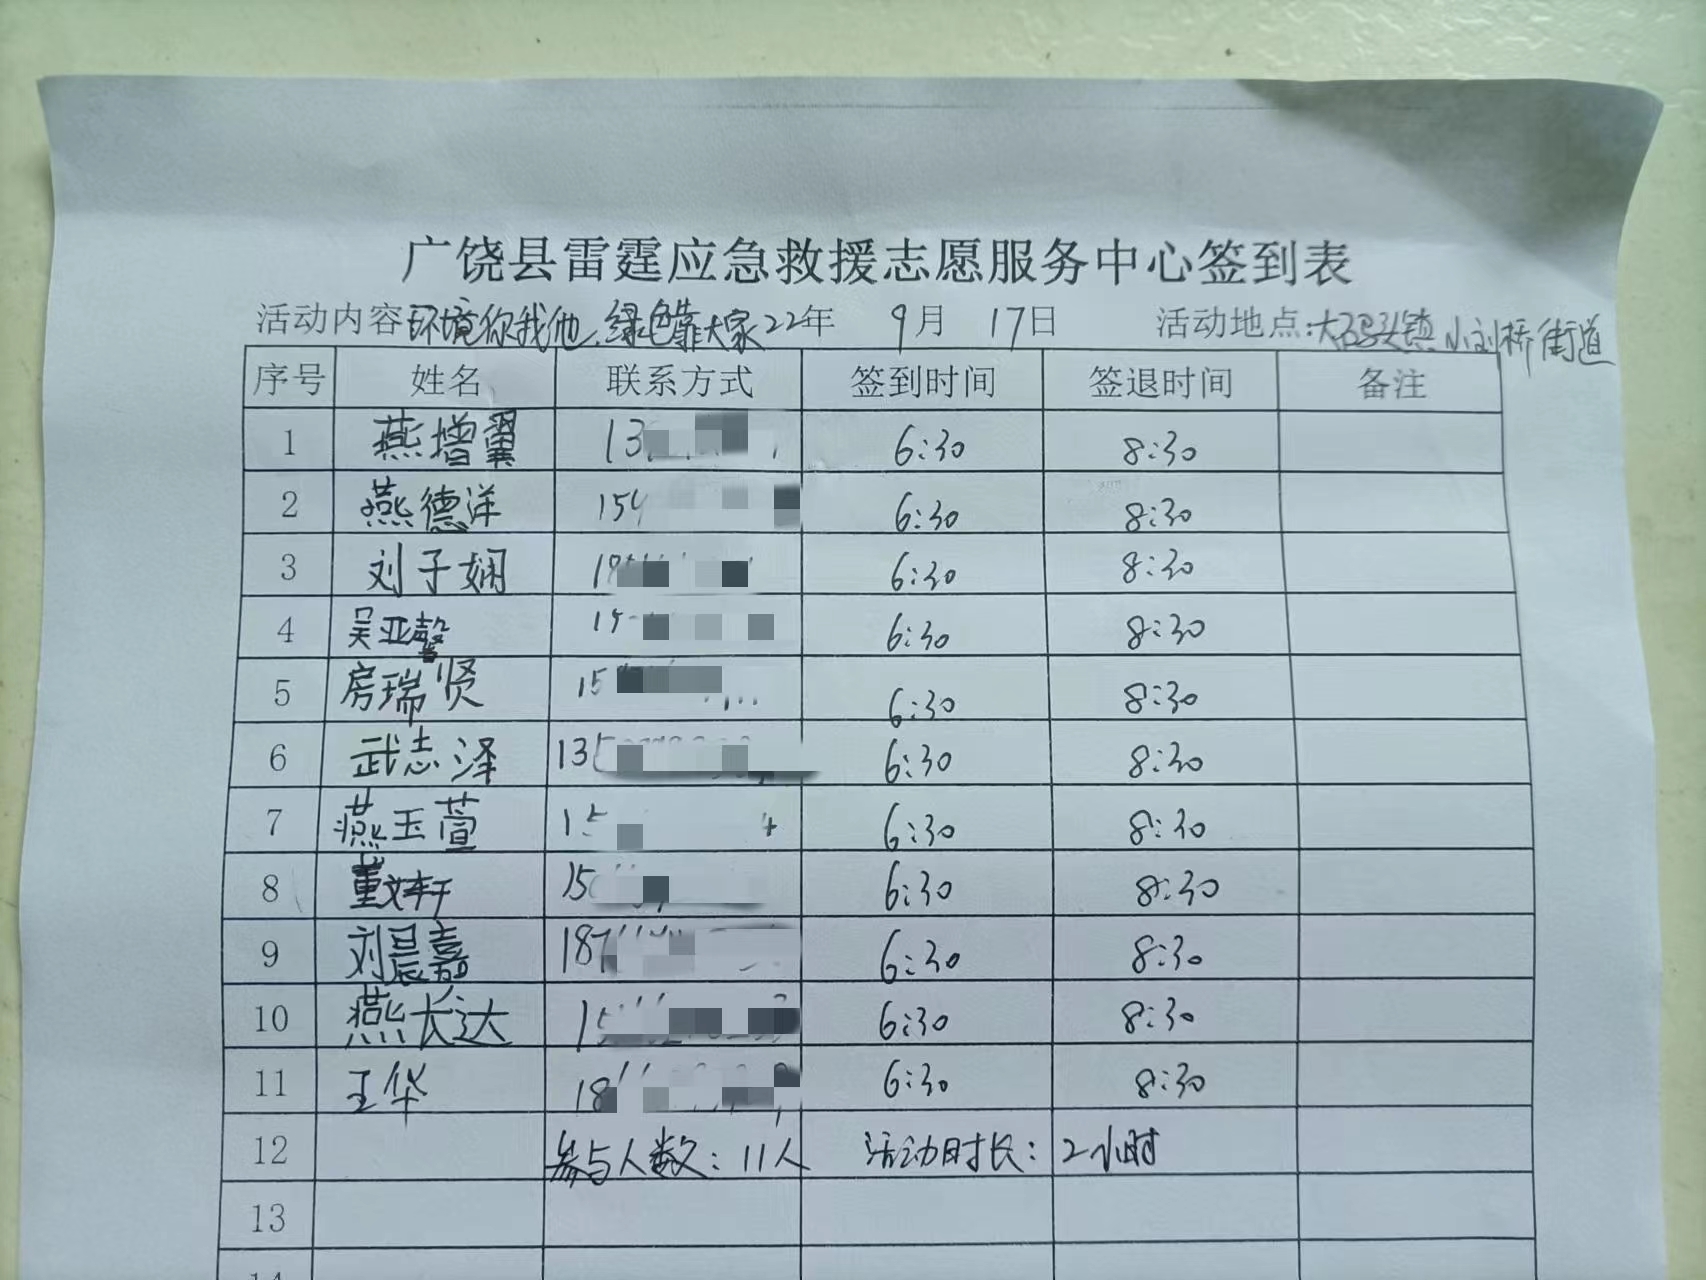 广饶县雷霆应急救援志愿服务中心签到表
活动内容环境你我他,绿色靠大家22年 9月 17日 活动地点:大码头镇小刘桥街道
序号 姓名 联系方式 签到时间 签退时间 备注
1 燕增翼 13 6:30 8:30
2 燕德洋 154 6:30 8:30
3 刘子娴 6:30 8:30
4 吴亚馨 6:30 8:30
5 房瑞贤 15 6:30 8:30
6 武志泽 135 6:30 8:30
7 燕玉萱 15 4 6:30 8:30
8 董文轩 15 6:30 8:30
9 刘晨嘉 187 6:30 8:30
10 燕长达 15 6:30 8:30
11 王华 18 6:30 8:30
12 参与人数:11人 活动时长:2小时
13
14